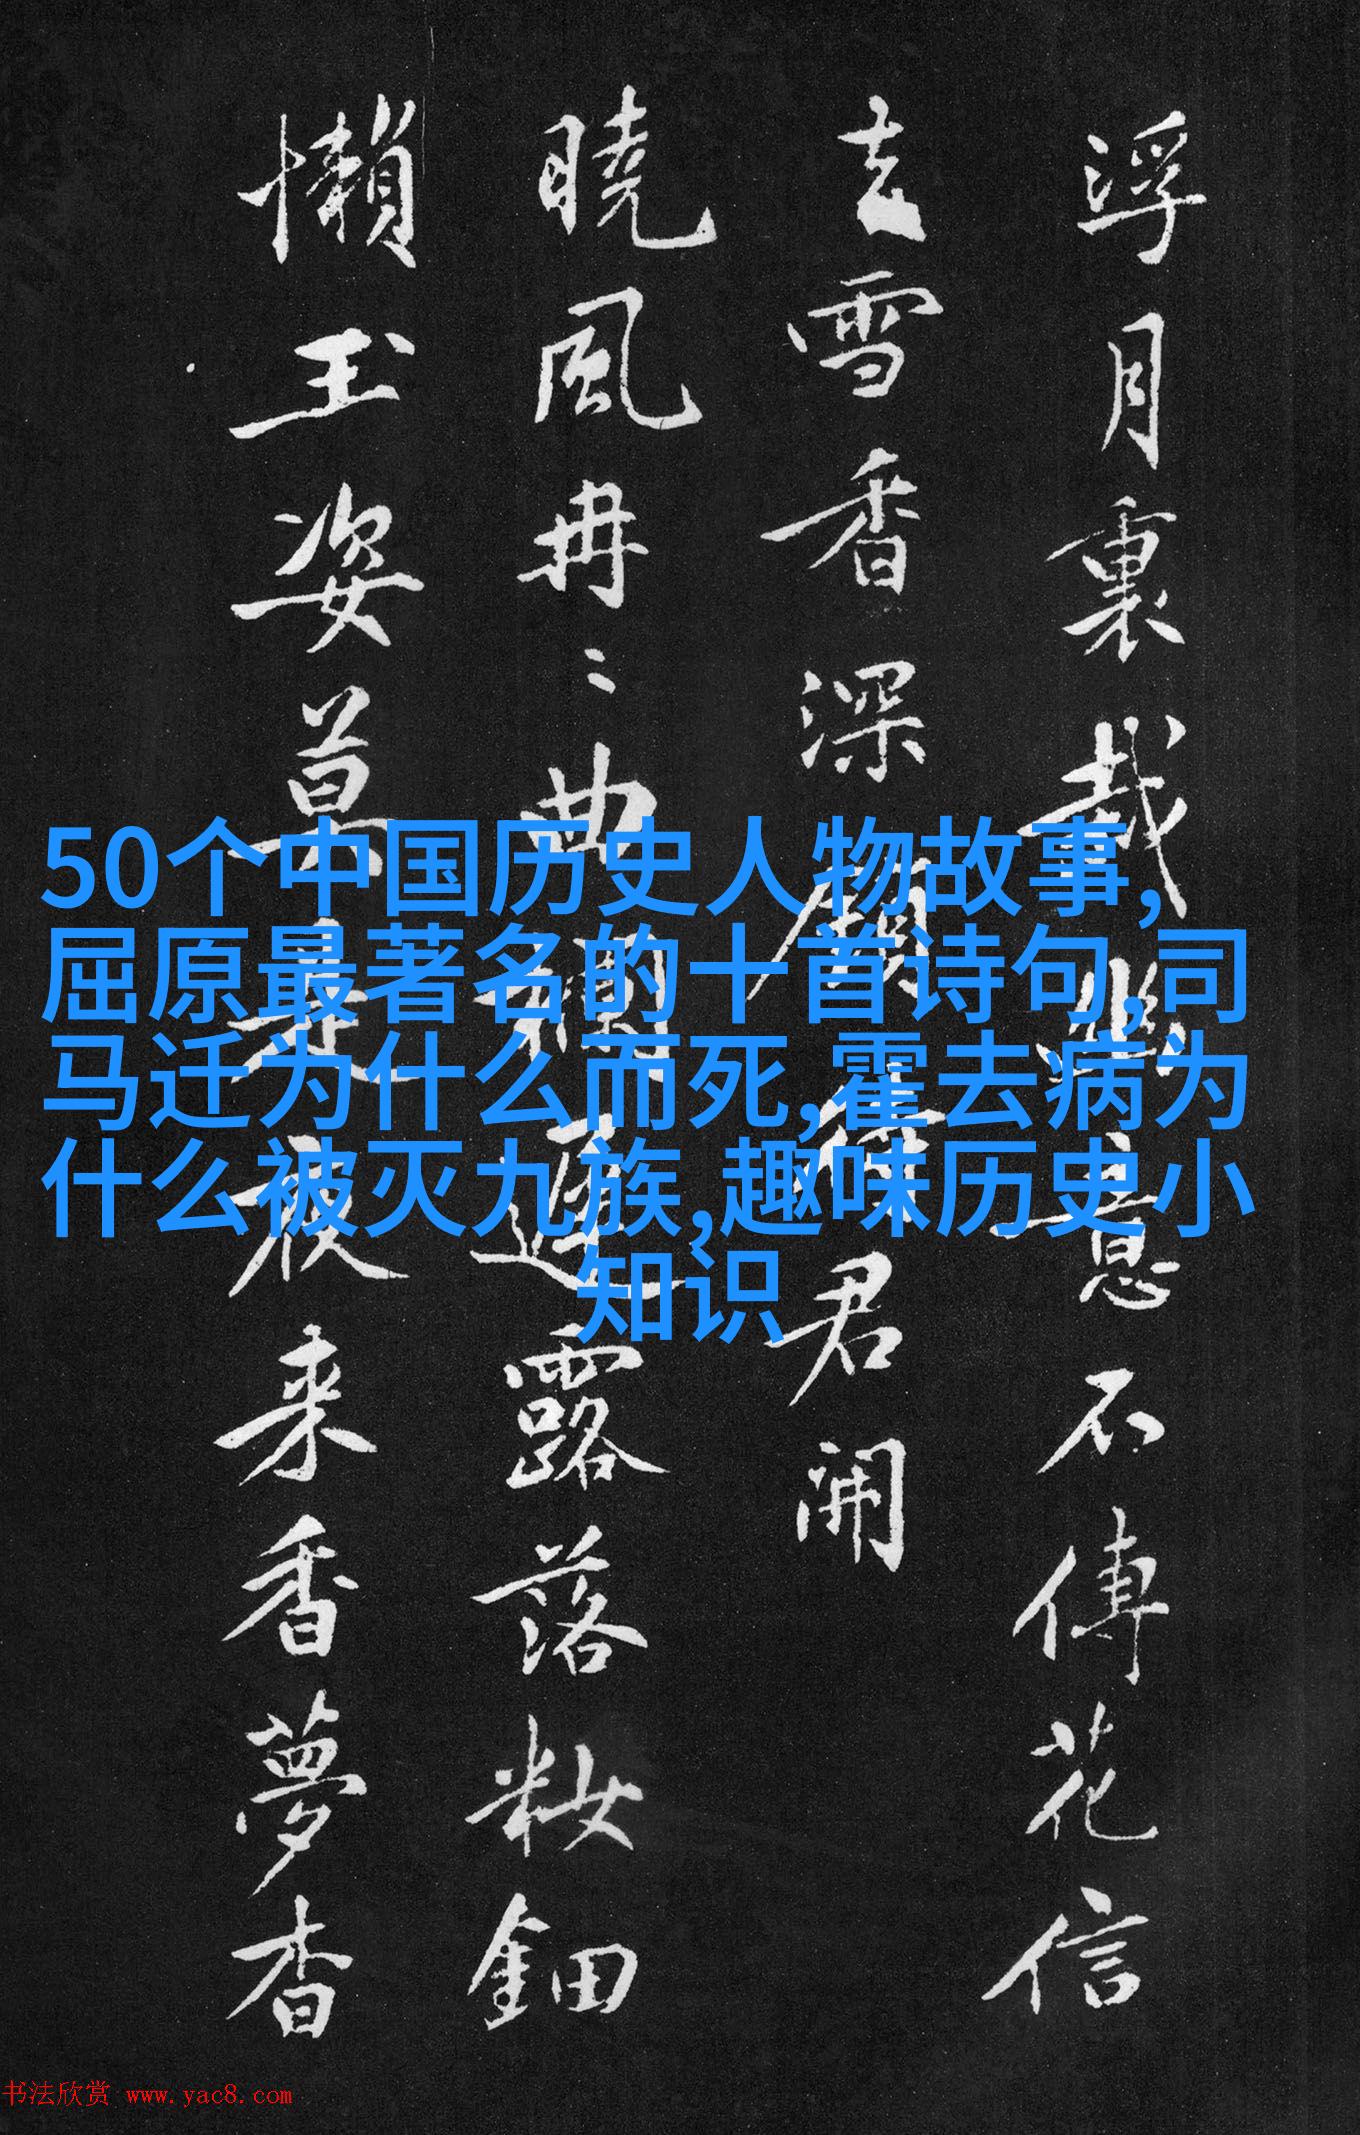 浮月裏栽幽意不傳花信
去雪香深顧待君開
曉風冉〻曲欄通露落粧鈿
懶玉姿莫是夜来香夢杳
50个中国历史人物故事,
屈原最著名的十首诗句,司
马迁为什么而死,霍去病为
什么被灭九族,趣味历史小
知识
书法欣赏 www.yac8.com